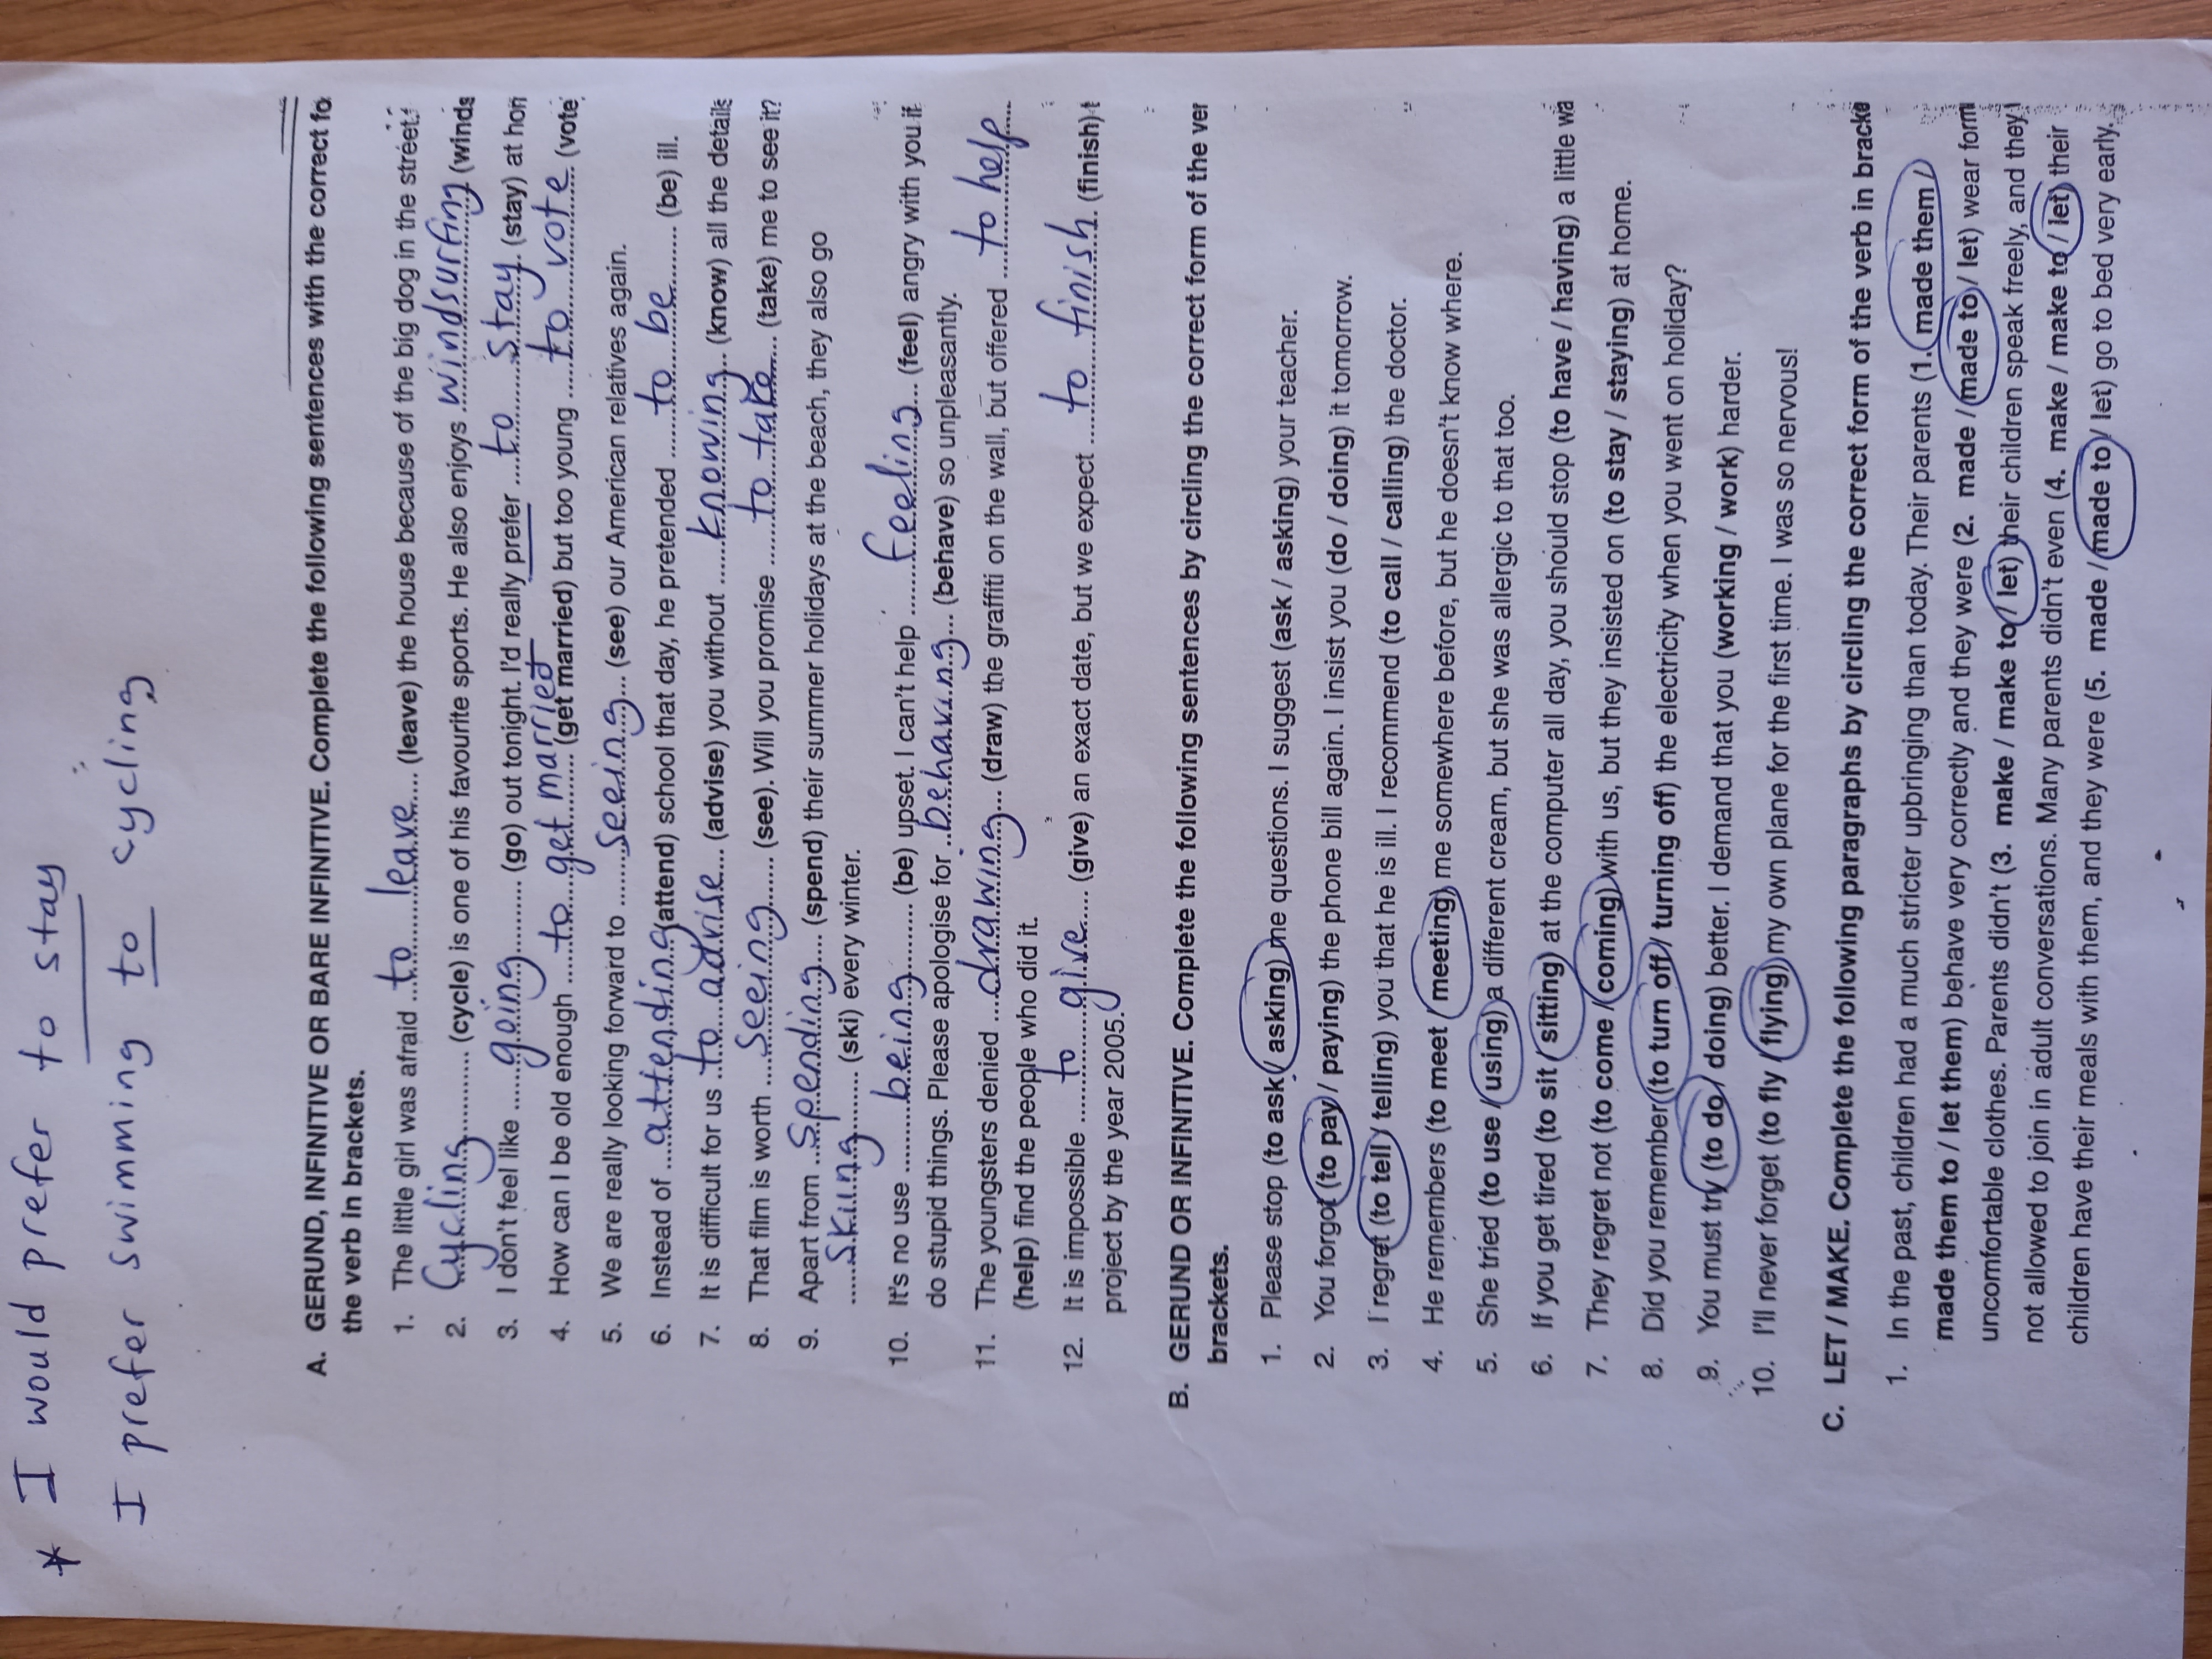 * I would prefer to stay
I prefer swimming to cycling
A. GERUND, INFINITIVE OR BARE INFINITIVE. Complete the following sentences with the correct fo
the verb in brackets.
1. The little girl was afraid ...to leave... (leave) the house because of the big dog in the street.
2. Cycling (cycle) is one of his favourite sports. He also enjoys windsurfing (winds
3. I don't feel like going (go) out tonight. I'd really prefer to stay (stay) at hom
4. How can I be old enough to get married (get married) but too young to vote (vote
5. We are really looking forward to seeing (see) our American relatives again.
6. Instead of attending (attend) school that day, he pretended to be (be) ill.
7. It is difficult for us to advise (advise) you without knowing (know) all the details
8. That film is worth seeing (see). Will you promise to take (take) me to see it?
9. Apart from spending (spend) their summer holidays at the beach, they also go
skiing (ski) every winter.
10. It's no use being (be) upset. I can't help feeling (feel) angry with you if
do stupid things. Please apologise for behaving (behave) so unpleasantly.
11. The youngsters denied drawing (draw) the graffiti on the wall, but offered to help
(help) find the people who did it.
12. It is impossible to give (give) an exact date, but we expect to finish (finish) t
project by the year 2005.
B. GERUND OR INFINITIVE. Complete the following sentences by circling the correct form of the ver
brackets.
1. Please stop (to ask / asking) me questions. I suggest (ask / asking) your teacher.
2. You forgot (to pay / paying) the phone bill again. I insist you (do / doing) it tomorrow.
3. I regret (to tell / telling) you that he is ill. I recommend (to call / calling) the doctor.
4. He remembers (to meet / meeting) me somewhere before, but he doesn't know where.
5. She tried (to use / using) a different cream, but she was allergic to that too.
6. If you get tired (to sit / sitting) at the computer all day, you should stop (to have / having) a little wa
7. They regret not (to come / coming) with us, but they insisted on (to stay / staying) at home.
8. Did you remember (to turn off / turning off) the electricity when you went on holiday?
9. You must try (to do / doing) better. I demand that you (working / work) harder.
10. I'll never forget (to fly / flying) my own plane for the first time. I was so nervous!
C. LET / MAKE. Complete the following paragraphs by circling the correct form of the verb in bracke
1. In the past, children had a much stricter upbringing than today. Their parents (1. made them /
made them to / let them) behave very correctly and they were (2. made / made to / let) wear form
uncomfortable clothes. Parents didn't (3. make / make to / let) their children speak freely, and they
not allowed to join in adult conversations. Many parents didn't even (4. make / make to / let) their
children have their meals with them, and they were (5. made / made to / let) go to bed very early.